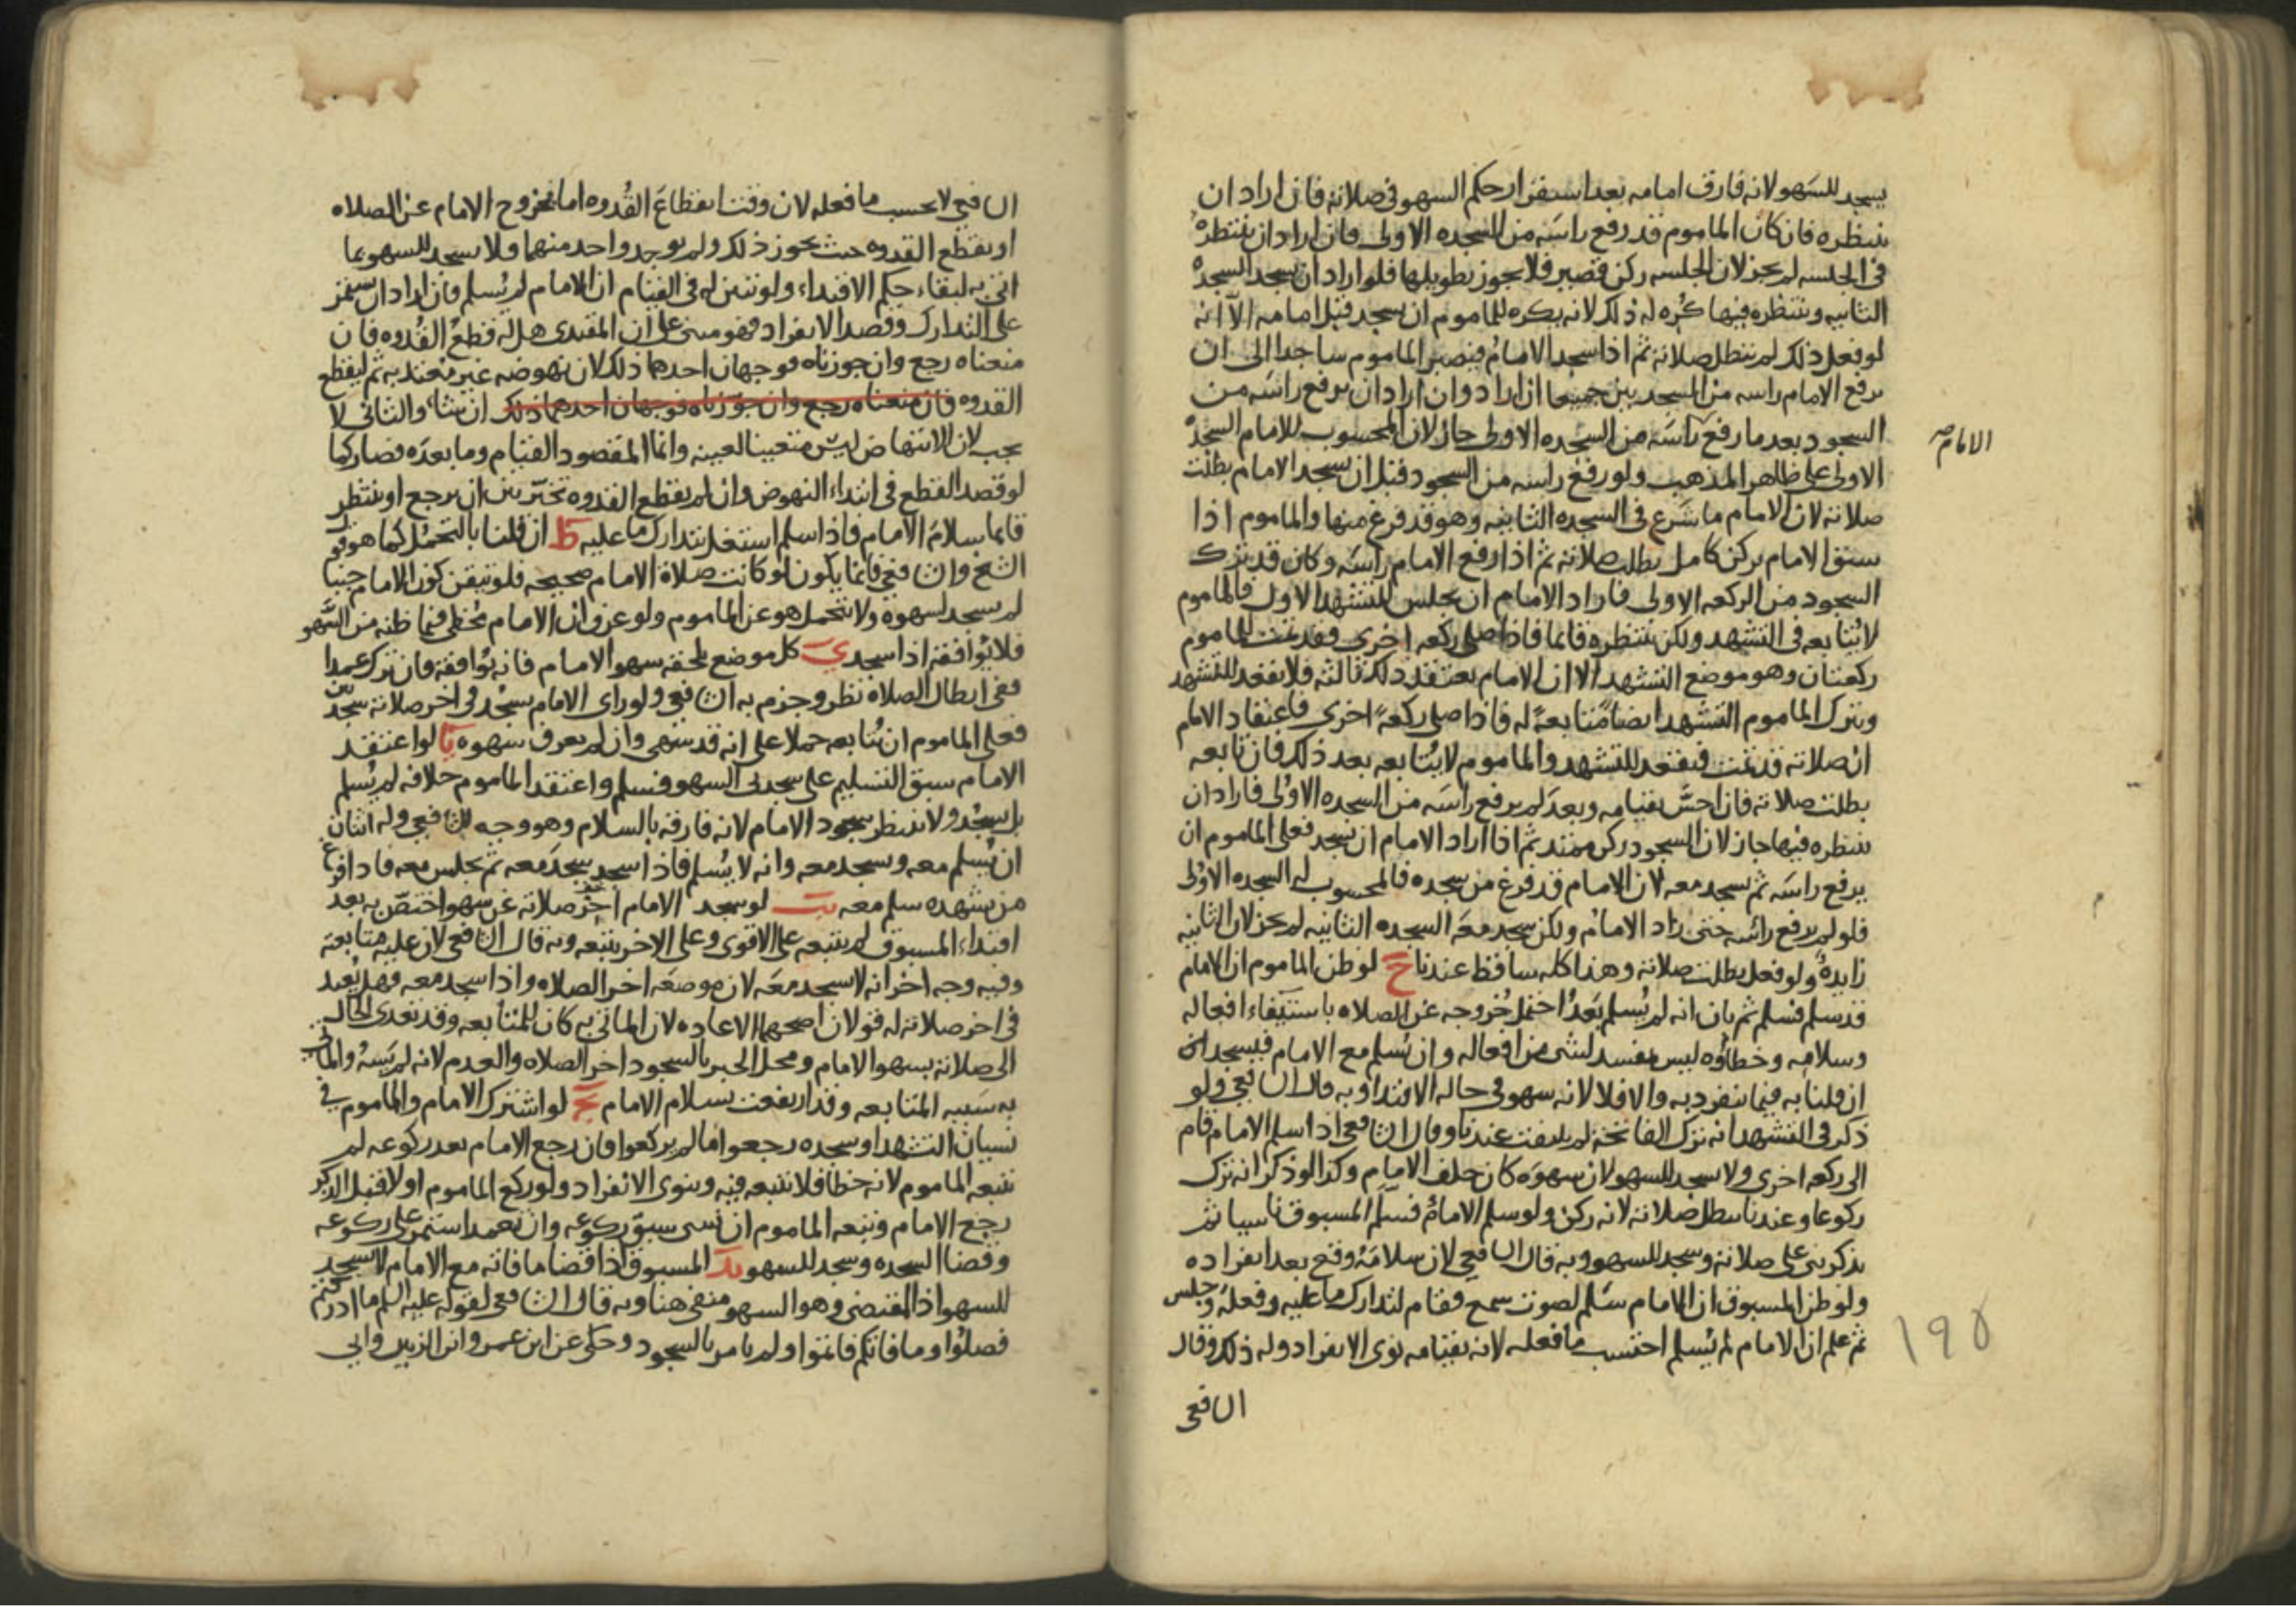 يسجد للسهو لانه فارق امامه بعد استقرار حكم السهو في صلاته فان اراد ان
ينتظره فان كان الماموم قد رفع راسه من السجده الاولى فان اراد ان ينتظره
في الجلسه لم يجز لان الجلسه ركن قصير فلا يجوز تطويلها فلو اراد ان يسجد السجده
الثانيه وينتظره فيها كره له ذلك لانه يكره للماموم ان يسجد قبل امامه الا انه
لو فعل ذلك لم تبطل صلاته ثم اذا سجد الامام فيصير الماموم ساجدا الى ان
يرفع الامام راسه من السجدتين جميعا ان اراد وان اراد ان يرفع راسه من
السجود بعد ما رفع راسه من السجده الاولى جاز لان المحسوب للامام السجده
الامام
الاولى على ظاهر المذهب ولو رفع راسه من السجود قبل ان يسجد الامام بطلت
صلاته لان الامام ما شرع في السجده الثانيه وهو قد فرغ منها والماموم اذا
سبق الامام بركن كامل بطلت صلاته ثم اذا رفع الامام راسه وكان قد ترك
السجود من الركعه الاولى فاراد الامام ان يجلس للتشهد الاول فالماموم
لا يتابعه في التشهد ولكن ينتظره قائما فاذا صلى ركعه اخرى فقد تمت للماموم
ركعتان وهو موضع التشهد الا ان الامام يعتقد ذلك ثالثه فلا يقعد للتشهد
ويترك الماموم التشهد ايضا متابعة له فاذا صلى ركعة اخرى فاعتقاد الامام
ان صلاته قد تمت فيقعد للتشهد والماموم لا يتابعه بعد ذلك فان تابعه
بطلت صلاته فان احس بقيامه وبعد لم يرفع راسه من السجده الاولى فاراد ان
ينتظره فيها جاز لان السجود ركن ممتد ثم اذا اراد الامام ان يسجد فعلى الماموم ان
يرفع راسه ثم يسجد معه لان الامام قد فرغ من سجده فالمحسوب له السجده الاولى
فلو لم يرفع راسه حتى زاد الامام ولكن سجد معه السجده الثانيه لم يجز لان الثانيه
زايده ولو فعل بطلت صلاته وهذا كله ساقط عندنا ح لو ظن الماموم ان الامام
قد سلم فسلم ثم بان انه لم يسلم بعد احتمل خروجه عن الصلاه باستيفاء افعاله
وسلامه وخطاؤه ليس بمفسد لشي من افعاله وان يسلم مع الامام فيسجد ان
ان قلنا به فيما ينفرد به والا فلا لانه سهو في حاله الاقتدا وبه قال الشافعي ولو
ذكر في التشهد انه ترك الفاتحه لم يلتفت عندنا وقال الشافعي اذا سلم الامام قام
الى ركعه اخرى ولا يسجد للسهو لان سهوه كان خلف الامام وكذا لو ذكر انه ترك
ركوعا وعندنا تبطل صلاته لانه ركن ولو سلم الامام فسلم المسبوق ناسيا ثم
يذكر بنى على صلاته وسجد للسهو وبه قال الشافعي لان سلامه وقع بعد انفراده
ولو ظن المسبوق ان الامام سلم لصوت سمع فقام لتدارك ما عليه وفعله وجلس
ثم علم ان الامام لم يسلم احتسب ما فعله لانه بقيامه نوى الانفراد وله ذلك وقال
١٩٥
الشافعي
الشافعي لا يحسب ما فعله لان وقت انقطاع القدوه اما بخروج الامام عن الصلاه
او بقطع القدوه حيث يجوز ذلك ولم يوجد واحد منهما ولا يسجد للسهو بما
اتى به لبقاء حكم الاقتداء ولو تبين له في القيام ان الامام لم يسلم فان اراد ان يستمر
على التدارك وقصد الانفراد فهو مبني على ان المقتدى هل له قطع القدوه فان
منعناه رجع وان جوزناه فوجهان احدهما ذلك لان نهوضه غير معتد به ثم ليقطع
القدوه فان منعناه رجع وان جوزناه فوجهان احدهما ذلك ان شاء والثاني لا
يجب لان الانتهاض ليس متعينا لعينه وانما المقصود القيام وما بعده فصار كما
لو قصد القطع في ابتداء النهوض وان لم يقطع القدوه تخير بين ان يرجع او ينتظر
قائما سلام الامام فاذا سلم اشتغل بتدارك ما عليه ط ان قلنا بالتحمل كما هو قول
الشيخ والشافعي فانما يكون لو كانت صلاة الامام صحيحه فلو تيقن كون الامام جنبا
لم يسجد لسهوه ولا يتحمل هو عن الماموم ولو عرف ان الامام مخطي فيما ظنه من السهو
فلا يوافقه اذا سجد ي كل موضع يلحقه سهو الامام فانه يوافقه فان ترك عمدا
ففي ابطال الصلاه نظر وجزم به الشافعي ولو راى الامام يسجد في اخر صلاته سجدتين
فعلى الماموم ان يتابعه حملا على انه قد سهى وان لم يعرف سهوه يا لو اعتقد
الامام سبق التسليم على سجدتى السهو فسلم واعتقد الماموم خلافه لم يسلم
بل يسجد ولا ينتظر سجود الامام لانه فارقه بالسلام وهو وجه للشافعي وله اثنان
ان يسلم معه ويسجد معه وانه لا يسلم فاذا سجد سجد معه ثم يجلس معه فاذا فرغ
من تشهده سلم معه يب لو سجد الامام اخر صلاته عن سهو اختص به بعد
اقتداء المسبوق لم يتبعه على الاقوى وعلى الاخر يتبعه وبه قال الشافعي لان عليه متابعته
وفيه وجه اخر انه لا يسجد معه لان موضعه اخر الصلاه واذا سجد معه فهل يعيد
في اخر صلاته له قولان اصحهما الاعاده لان الماتي به كان للمتابعه وقد تعدى الخلل
الى صلاته بسهو الامام ومحل الجبر بالسجود اخر الصلاه والعدم لانه لم يسه والماتي
به سببه المتابعه وقد ارتفعت بسلام الامام يج لو اشترك الامام والماموم في
نسيان التشهد او سجده رجعوا ما لم يركعوا فان رجع الامام بعد ركوعه لم
يتبعه الماموم لانه خطا فلا يتبعه فيه وينوى الانفراد ولو ركع الماموم اولا قبل الذكر
رجع الامام وتبعه الماموم ان نسى سبق ركوعه وان تعمد استمر على ركوعه
وقضا السجده وسجد للسهو يد المسبوق اذا قضا ما فاته مع الامام لا يسجد
للسهو اذ المقتضى وهو السهو منفي هنا وبه قال الشافعي لقوله عليه السلم ما ادركتم
فصلوا وما فاتكم فاتموا ولم يامر بالسجود وحكى عن ابن عمر وابن الزبير وابي